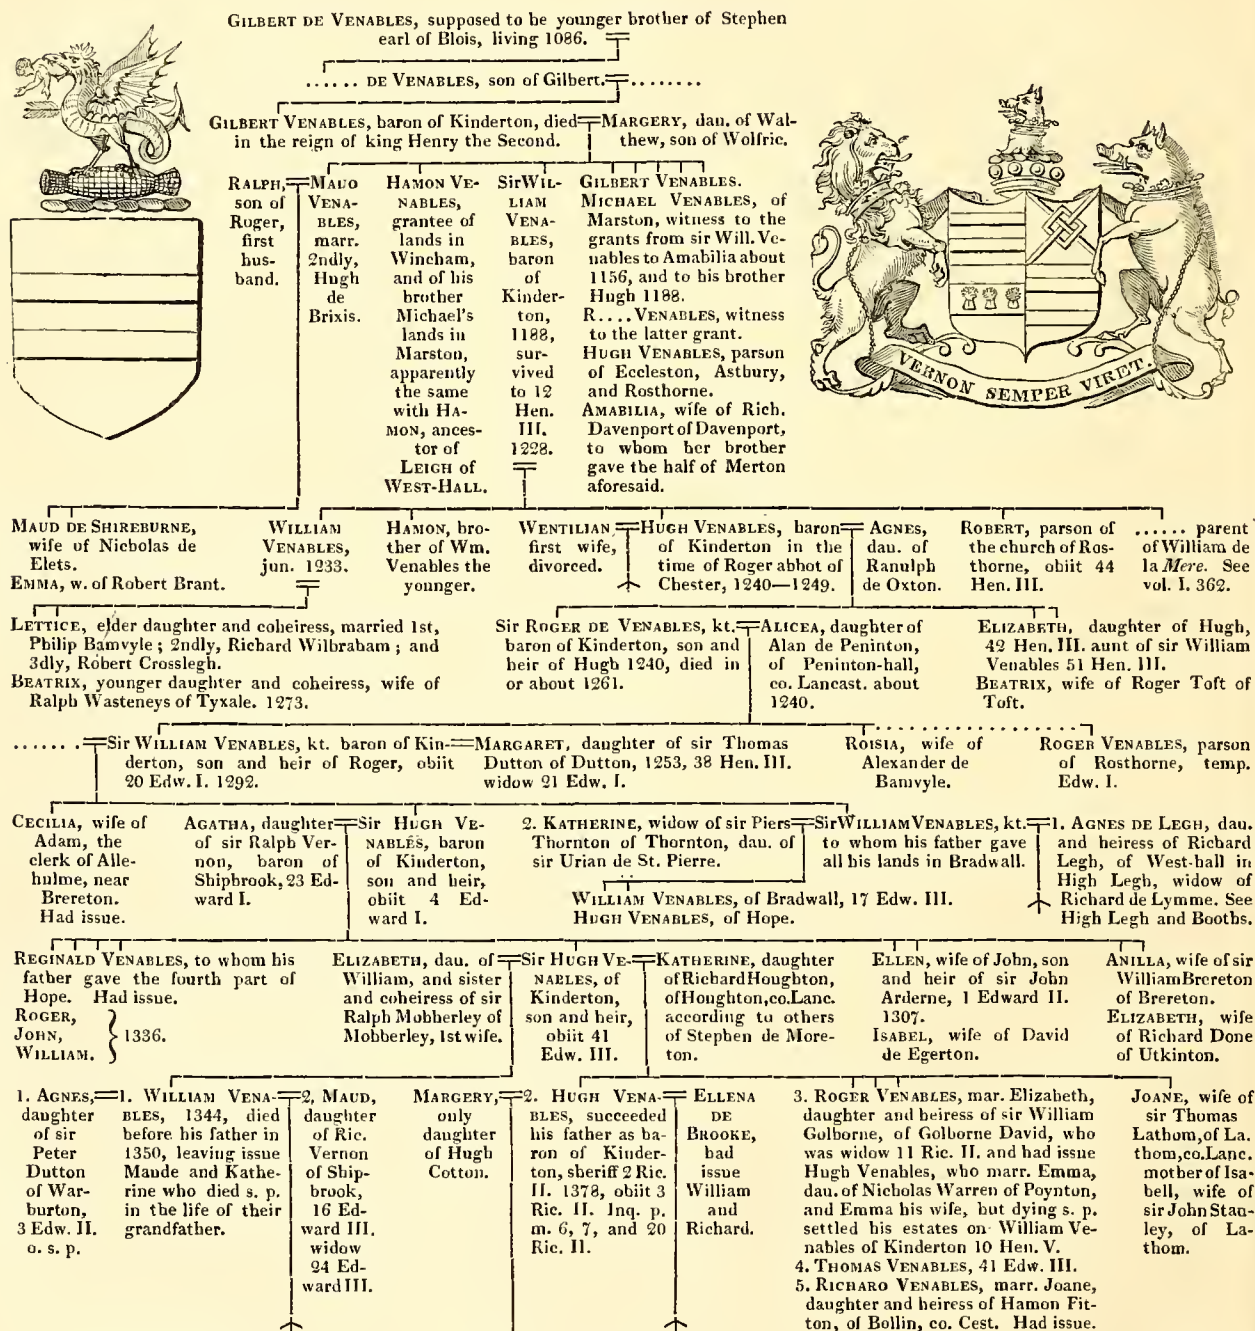 GILBERT DE VENABLES, supposed to be younger brother of Stephen
earl of Blois, living 1086.
...... DE VENABLES, son of Gilbert. ........
GILBERT VENABLES, baron of Kinderton, died
in the reign of king Henry the Second.
MARGERY, dau. of Wal-
thew, son of Wolfric.
RALPH,
son of
Roger,
first
hus-
band.
MAUD
VENA-
BLES,
marr.
2ndly,
Hugh
de
Brixis.
HAMON VE-
NABLES,
grantee of
lands in
Wincham,
and of his
brother
Michael's
lands in
Marston,
apparently
the same
with HA-
MON, ances-
tor of
LEIGH of
WEST-HALL.
Sir WIL-
LIAM
VENA-
BLES,
baron
of
Kinder-
ton,
1188,
sur-
vived
to 12
Hen.
III.
1228.
GILBERT VENABLES.
MICHAEL VENABLES, of
Marston, witness to the
grants from sir Will. Ve-
nables to Amabilia about
1156, and to his brother
Hugh 1188.
R....VENABLES, witness
to the latter grant.
HUGH VENABLES, parson
of Eccleston, Astbury,
and Rosthorne.
AMABILIA, wife of Rich.
Davenport of Davenport,
to whom her brother
gave the half of Merton
aforesaid.
VERNON SEMPER VIRET.
MAUD DE SHIREBURNE,
wife of Nicholas de
Elets.
EMMA, w. of Robert Brant.
WILLIAM
VENABLES,
jun. 1233.
HAMON, bro-
ther of Wm.
Venables the
younger.
WENTILIAN
first wife,
divorced.
HUGH VENABLES, baron
of Kinderton in the
time of Roger abbot of
Chester, 1240—1249.
AGNES,
dau. of
Ranulph
de Oxton.
ROBERT, parson of
the church of Ros-
thorne, obiit 44
Hen. III.
...... parent
of William de
la Mere. See
vol. I. 362.
LETTICE, elder daughter and coheiress, married 1st,
Philip Bamvyle; 2ndly, Richard Wilbraham; and
3dly, Robert Crosslegh.
BEATRIX, younger daughter and coheiress, wife of
Ralph Wasteneys of Tyxale. 1273.
Sir ROGER DE VENABLES, kt.
baron of Kinderton, son and
heir of Hugh 1240, died in
or about 1261.
ALICEA, daughter of
Alan de Peninton,
of Peninton-hall,
co. Lancast. about
1240.
ELIZABETH, daughter of Hugh,
42 Hen. III. aunt of sir William
Venables 51 Hen. III.
BEATRIX, wife of Roger Toft of
Toft.
.......
Sir WILLIAM VENABLES, kt. baron of Kin-
derton, son and heir of Roger, obiit
20 Edw. I. 1292.
MARGARET, daughter of sir Thomas
Dutton of Dutton, 1253, 38 Hen. III.
widow 21 Edw. I.
ROISIA, wife of
Alexander de
Bamvyle.
ROGER VENABLES, parson
of Rosthorne, temp.
Edw. I.
CECILIA, wife of
Adam, the
clerk of Alle-
hulme, near
Brereton.
Had issue.
AGATHA, daughter
of sir Ralph Ver-
non, baron of
Shipbrook, 23 Ed-
ward I.
Sir HUGH VE-
NABLES, baron
of Kinderton,
son and heir,
obiit 4 Ed-
ward I.
2. KATHERINE, widow of sir Piers
Thornton of Thornton, dau. of
sir Urian de St. Pierre.
Sir WILLIAM VENABLES, kt.
to whom his father gave
all his lands in Bradwall.
1. AGNES DE LEGH, dau.
and heiress of Richard
Legh, of West-hall in
High Legh, widow of
Richard de Lymme. See
High Legh and Booths.
WILLIAM VENABLES, of Bradwall, 17 Edw. III.
HUGH VENABLES, of Hope.
REGINALD VENABLES, to whom his
father gave the fourth part of
Hope. Had issue.
ROGER,
JOHN, } 1336.
WILLIAM.
ELIZABETH, dau. of
William, and sister
and coheiress of sir
Ralph Mobberley of
Mobberley, 1st wife.
Sir HUGH VE-
NABLES, of
Kinderton,
son and heir,
obiit 41
Edw. III.
KATHERINE, daughter
of Richard Houghton,
of Houghton, co. Lanc.
according to others
of Stephen de More-
ton.
ELLEN, wife of John, son
and heir of sir John
Arderne, 1 Edward II.
1307.
ISABEL, wife of David
de Egerton.
ANILLA, wife of sir
William Brereton
of Brereton.
ELIZABETH, wife
of Richard Done
of Utkinton.
1. AGNES,
daughter
of sir
Peter
Dutton
of War-
burton,
3 Edw. II.
o. s. p.
1. WILLIAM VENA-
BLES, 1344, died
before his father in
1350, leaving issue
Maude and Kathe-
rine who died s. p.
in the life of their
grandfather.
2, MAUD,
daughter
of Ric.
Vernon
of Ship-
brook,
16 Ed-
ward III.
widow
24 Ed-
ward III.
MARGERY,
only
daughter
of Hugh
Cotton.
2. HUGH VENA-
BLES, succeeded
his father as ba-
ron of Kinder-
ton, sheriff 2 Ric.
II. 1378, obiit 3
Ric. II. Inq. p.
m. 6, 7, and 20
Ric. II.
ELLENA
DE
BROOKE,
had
issue
William
and
Richard.
3. ROGER VENABLES, mar. Elizabeth,
daughter and heiress of sir William
Golborne, of Golborne David, who
was widow 11 Ric. II. and had issue
Hugh Venables, who marr. Emma,
dau. of Nicholas Warren of Poynton,
and Emma his wife, but dying s. p.
settled his estates on William Ve-
nables of Kinderton 10 Hen. V.
4. THOMAS VENABLES, 41 Edw. III.
5. RICHARD VENABLES, marr. Joane,
daughter and heiress of Hamon Fit-
ton, of Bollin, co. Cest. Had issue.
JOANE, wife of
sir Thomas
Lathom, of La-
thom, co. Lanc.
mother of Isa-
bell, wife of
sir John Stan-
ley, of La-
thom.